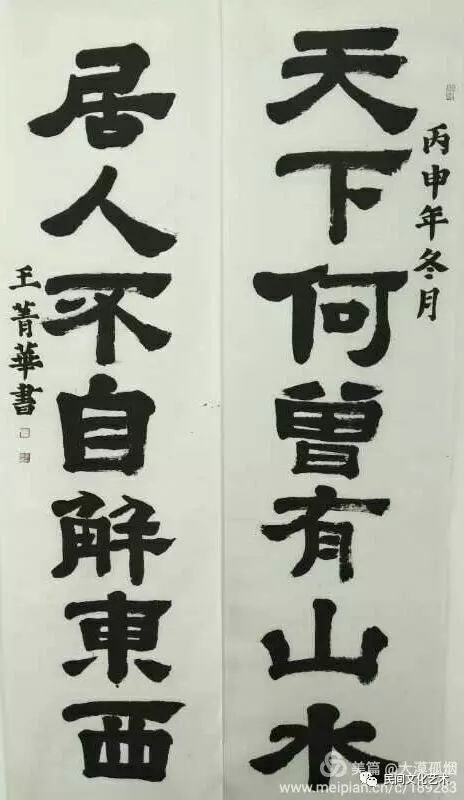 丙申年冬月
天下何曾有山水
居人不自解東西
王菁華書
美篇 @大漠孤烟
www.meipian.cn/c/189283
民间文化艺术